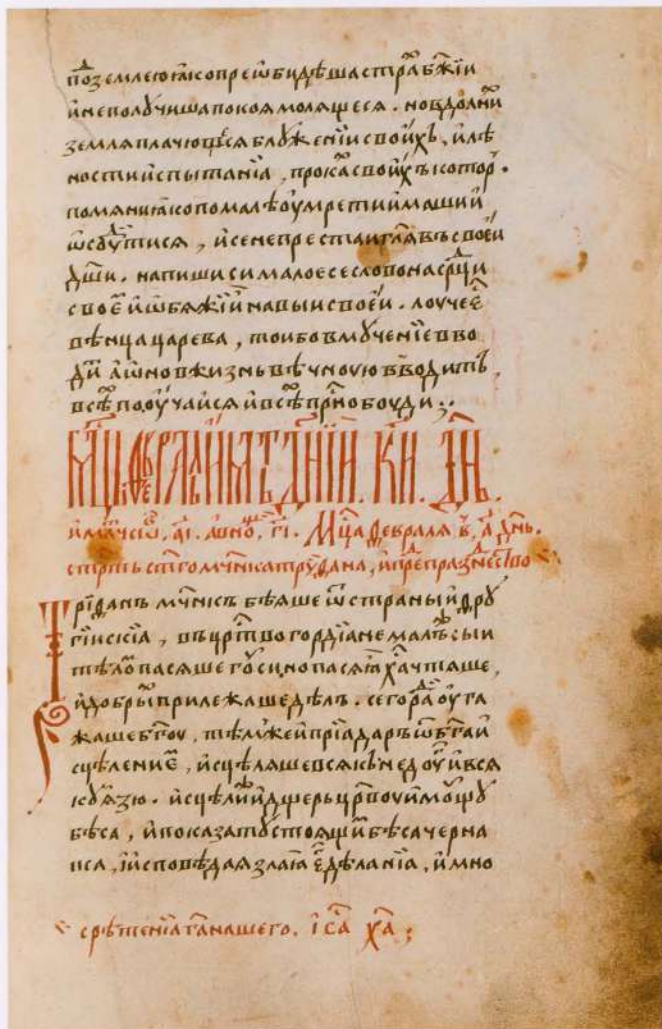 по̑землеюꙗ҆коприѡ҆бидѣшастра̑бж҃їи
и҆неполꙋчишапокоѧмолѧщесѧ. новдолнїи
землѧплачющесѧблꙋженїисвои҆хъ, и҆лѣ
ностии҆спытанїѧ, прока̑свои҆хъкотор̑.
помѧниꙗ҆копомалѣоу҆мретии҆маши и҆
ѿсꙋ̑тисѧ, и҆сенепрестаиг҃лѧвъсвоеи
дш҃и. напишисималоесесловонасрц҃и
свое̑ и҆ѡ҆бѧжи и҆навыисвоеи. лоучее̑
вѣнцацарева, тоибовмꙋченїевво
ди̑ а҆ѡновжизньвѣчноуюв̾водитъ,
все̑поѹ҆чаисѧи҆все̑прн҃обоуди ;
мц҃ъ феврал҃ь и҆мат̑ъ дн҃їи. к҃и. дн҃ь.
и҆мач̑сѡ҆в̑. а҃і. а҆вно҆щ̑. г҃і. Мц҃афевралѧ в̑, а҃ дн҃ь.
стр̑тьст҃гомч҃нкатрꙋфана, и҆пре̑празн̑ество
Трїфанъ мч҃никъ бѣѧше ѿстраныи҆фрꙋ
гїискїѧ, въцр҃твогордїанемалъ̑сыи
тѣло̑пасѧшегꙋ̑си, нопасѧ̑х҃ачтѧше,
и҆добры̑прилежашедѣлъ. сегора̑оу҆га
жашебг҃оу, тѣм̾жеи҆прїа̑даръѿбг҃аи҆
сцѣленїе̑, и҆сцѣлѧшевсѧкъ недоу̑и҆всѧ
кꙋꙗ҆зю. и҆сцѣли̑и҆дщерьцр҃воуи҆мꙋщꙋ
бѣса, и҆показатꙋстоѧщи̑бѣсачерна
пса, и҆исповѣдаѧзлаꙗ̑ е҆̑дѣланїѧ, и҆мно
срѣтенїѧг҃анашего. І҆с҃а х҃а ;